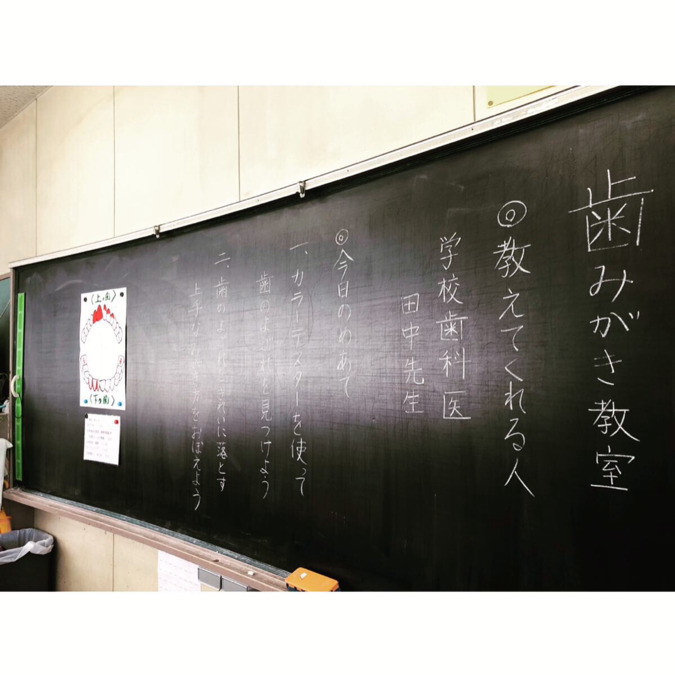 歯みがき教室
◎教えてくれる人
学校歯科医
田中先生
◎今日のめあて
一、カラーテスターを使って
歯のよごれを見つけよう
二、歯のよごれをきれいに落とす
上手なみがき方をおぼえよう
(上の歯)
(下の歯)